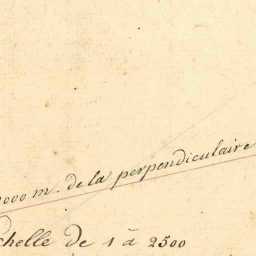 000 m. de la perpendiculaire
chelle de 1 à 2500